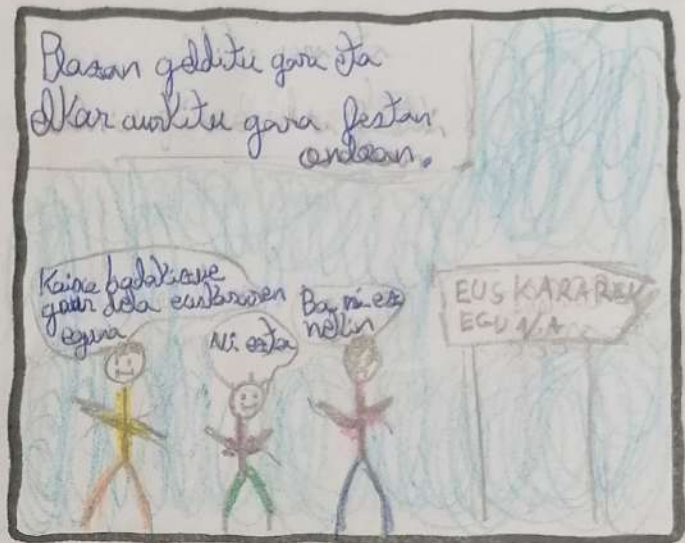 Plazan gelditu gara eta
elkar aurkitu gara festan
ondoan.
Kaixo badakizue
gaur dela euskararen
eguna
Ni ezta
Ba, ni ez
nekin
EUSKARAREN
EGUNA